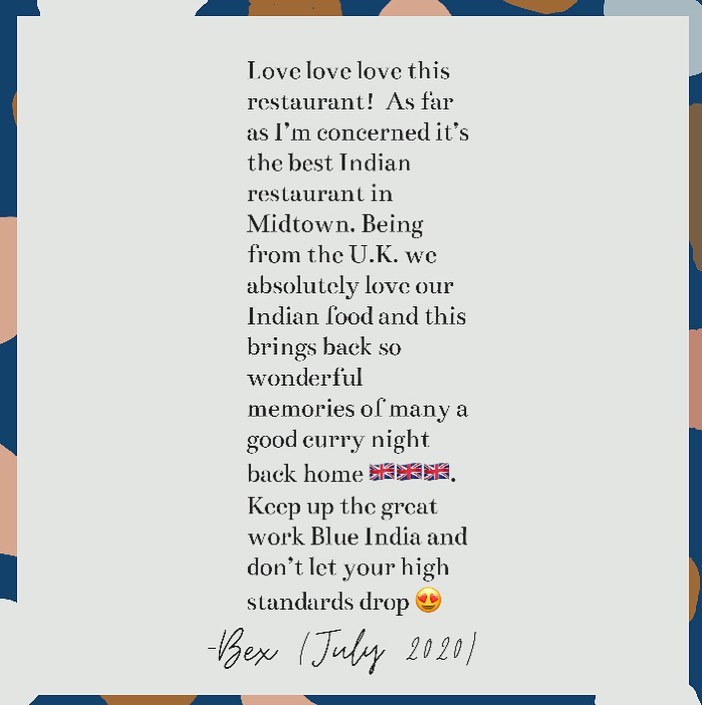 Love love love this
restaurant!  As far
as I’m concerned it’s
the best Indian
restaurant in
Midtown. Being
from the U.K. we
absolutely love our
Indian food and this
brings back so
wonderful
memories of many a
good curry night
back home 🇬🇧🇬🇧🇬🇧.
Keep up the great
work Blue India and
don’t let your high
standards drop 😍
-Bex (July 2020)